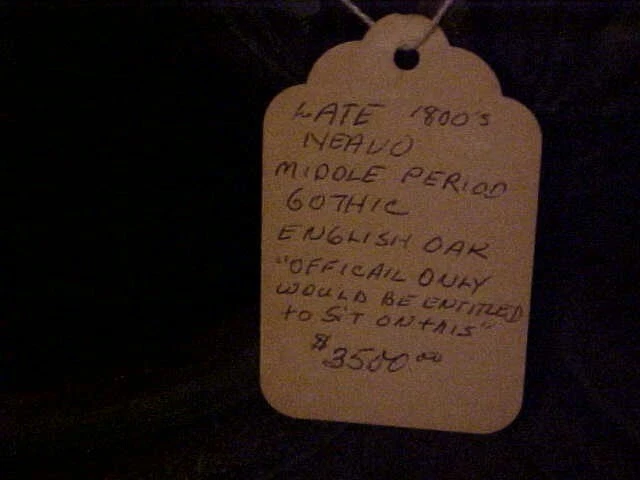 LATE 1800's
NEAUO
MIDDLE PERIOD
GOTHIC
ENGLISH OAK
"OFFICAIL ONLY
WOULD BE ENTITLED
to SIT ON tHIS"
$3500.00